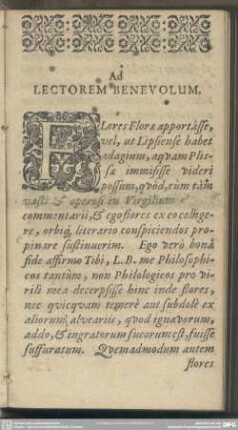 Ad
LECTOREM BENEVOLUM.
FLores Floræ apportâsse,
vel, ut Lipsiense habet
adagium, aqvam Plis-
sæ immisisse videri
possum, qvòd, cùm tàm
vasti & operosi in Virgilium
commentarii, & ego flores ex eo colige-
re, orbiq́ literario conspiciendos pro-
pinare sustinuerim. Ego verò bonâ
fide affirmo Tibi, L.B. me Philosophi-
cos tantùm, non Philologicos pro vi-
rili meâ decerpsisse hinc inde flores,
nec qvicqvam temerè aut subdolè ex
aliorum alveariis, qvod ignavorum,
addo, & ingratorum fucorum est, fuisse
suffuratum. Qvemadmodum autem
flores